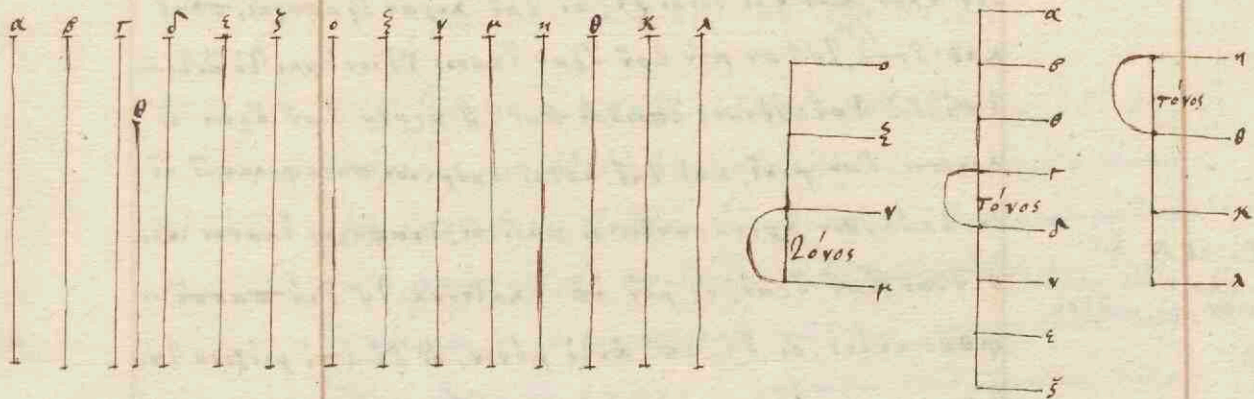 α β γ δ ε ζ ο ξ ν μ η θ κ λ
θ
ο
ξ
ν
τόνος
μ
α
β
θ
γ
τόνος
δ
ν
ε
ζ
η
τόνος
θ
κ
λ